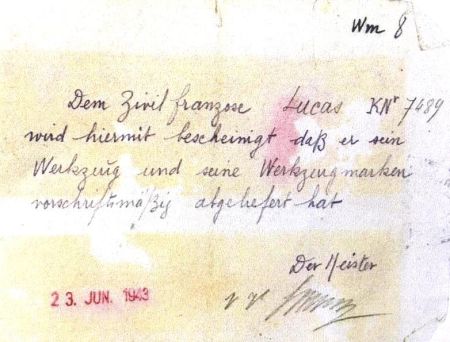 Wm 8
Dem Zivilfranzose Lucas KNr 7489
wird hiermit bescheinigt daß er sein
Werkzeug und seine Werkzeugmarken
vorschriftsmäßig abgeliefert hat
Der Meister
23. JUN. 1943